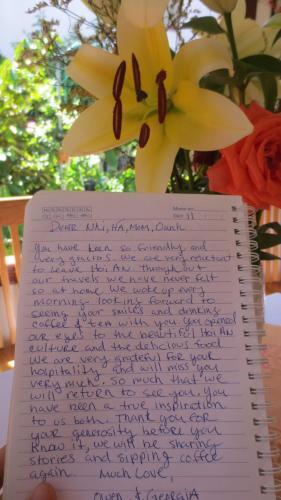 Date: 11
DEAR NHI, HA, MOM, Oanh
You have been so friendly and
very gracious. We are very reluctant
to leave Hoi An. Throughout
our travels we have never felt
so at home. We woke up every
morning looking forward to
seeing your smiles and drinking
coffee & tea with you. You opened
our eyes to the beautiful Hoi An
culture and the delicious food
We are very grateful for your
hospitality and will miss you
very much. So much that we
will return to see you. You
have been a true inspiration
to us both. Thank you for
your generosity before you
know it, we will be sharing
stories and sipping coffee
again. Much Love,
Owen & Georgia